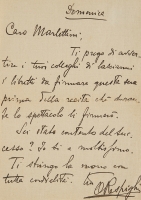 Domenica
Caro Marlettini,
Ti prego di avver
tire i tuoi colleghi di lasciarmi
libertà di firmare questa sera
prima della recita che
lo spettacolo di
Sei stato contento del suc
cesso? Io sì e moltissimo.
Ti stringo la mano con
tutta cordialità. tuo
ORespighi